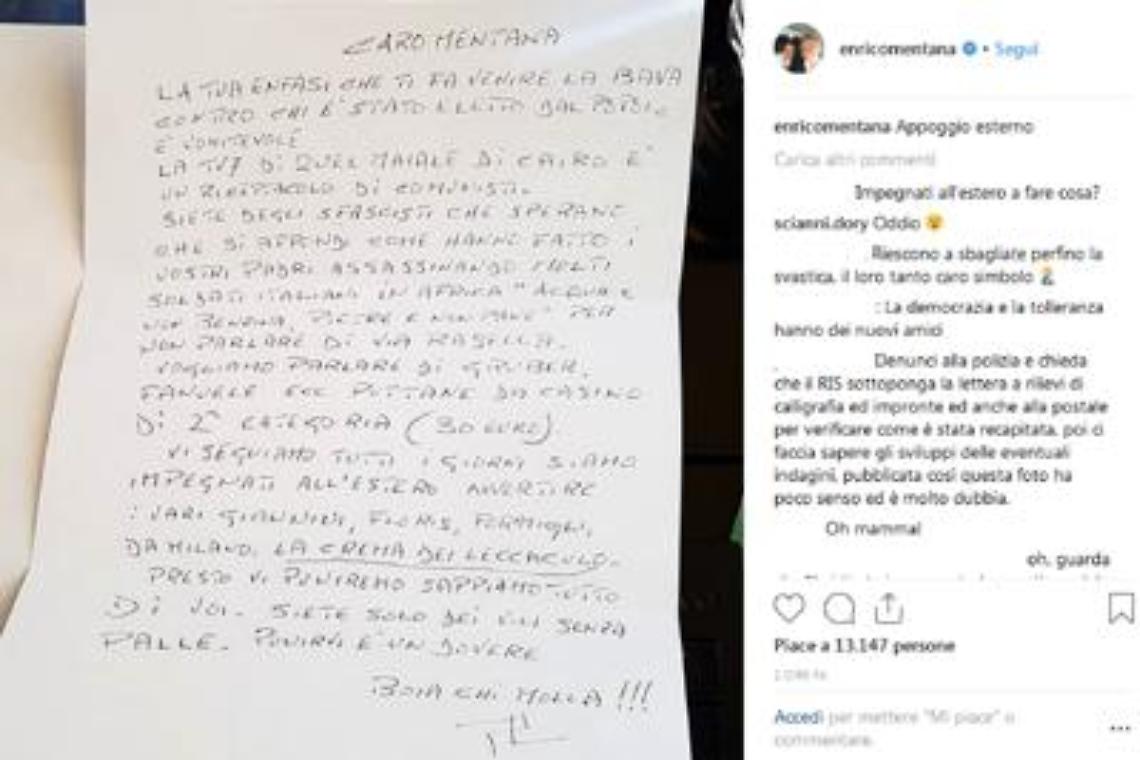 CARO MENTANA
LA TUA ENFASI CHE TI FA VENIRE LA BAVA
CONTRO CHI E' STATO ELETTO DAL
E' VOMITEVOLE
LA TV7 DI QUEL MAIALE DI CAIRO E'
UN RICETTACOLO DI COMUNISTI.
SIETE DEGLI SFASCISTI CHE SPERANO
CHE SI AFFONDI COME HANNO FATTO I
VOSTRI PADRI ASSASSINANDO MOLTI
SOLDATI ITALIANI IN AFRICA "ACQUA E
NON BENZINA, PIETRE E NON PANE" PER
NON PARLARE DI VIA RASELLA.
VOGLIAMO PARLARE DI GRUBER,
ECC PUTTANE DA CASINO
DI 2° CATEGORIA (30 EURO)
VI SEGUIAMO TUTTI I GIORNI SIAMO
IMPEGNATI ALL'ESTERO
: VARI GIANNINI, FLORIS, FORMIGLI,
DA MILANO. LA CREMA DEI LECCACULO.
PRESTO VI PUNIREMO SAPPIAMO TUTTO
DI VOI. SIETE SOLO DEI VILI SENZA
PALLE. PUNIRVI E' UN DOVERE
BOIA CHI MOLLA !!!
enricomentana • Segui
enricomentana Appoggio esterno
Carica altri commenti
Impegnati all'estero a fare cosa?
scianni.dory Oddio 😮
Riescono a sbagliate perfino la
svastica, il loro tanto caro simbolo
: La democrazia e la tolleranza
hanno dei nuovi amici
Denunci alla polizia e chieda
che il RIS sottoponga la lettera a rilievi di
calligrafia ed impronte ed anche alla postale
per verificare come è stata recapitata, poi ci
faccia sapere gli sviluppi delle eventuali
indagini, pubblicata così questa foto ha
poco senso ed è molto dubbia.
Oh mamma!
oh, guarda
Piace a 13.147 persone
Accedi per mettere "Mi piace" o
commentare.